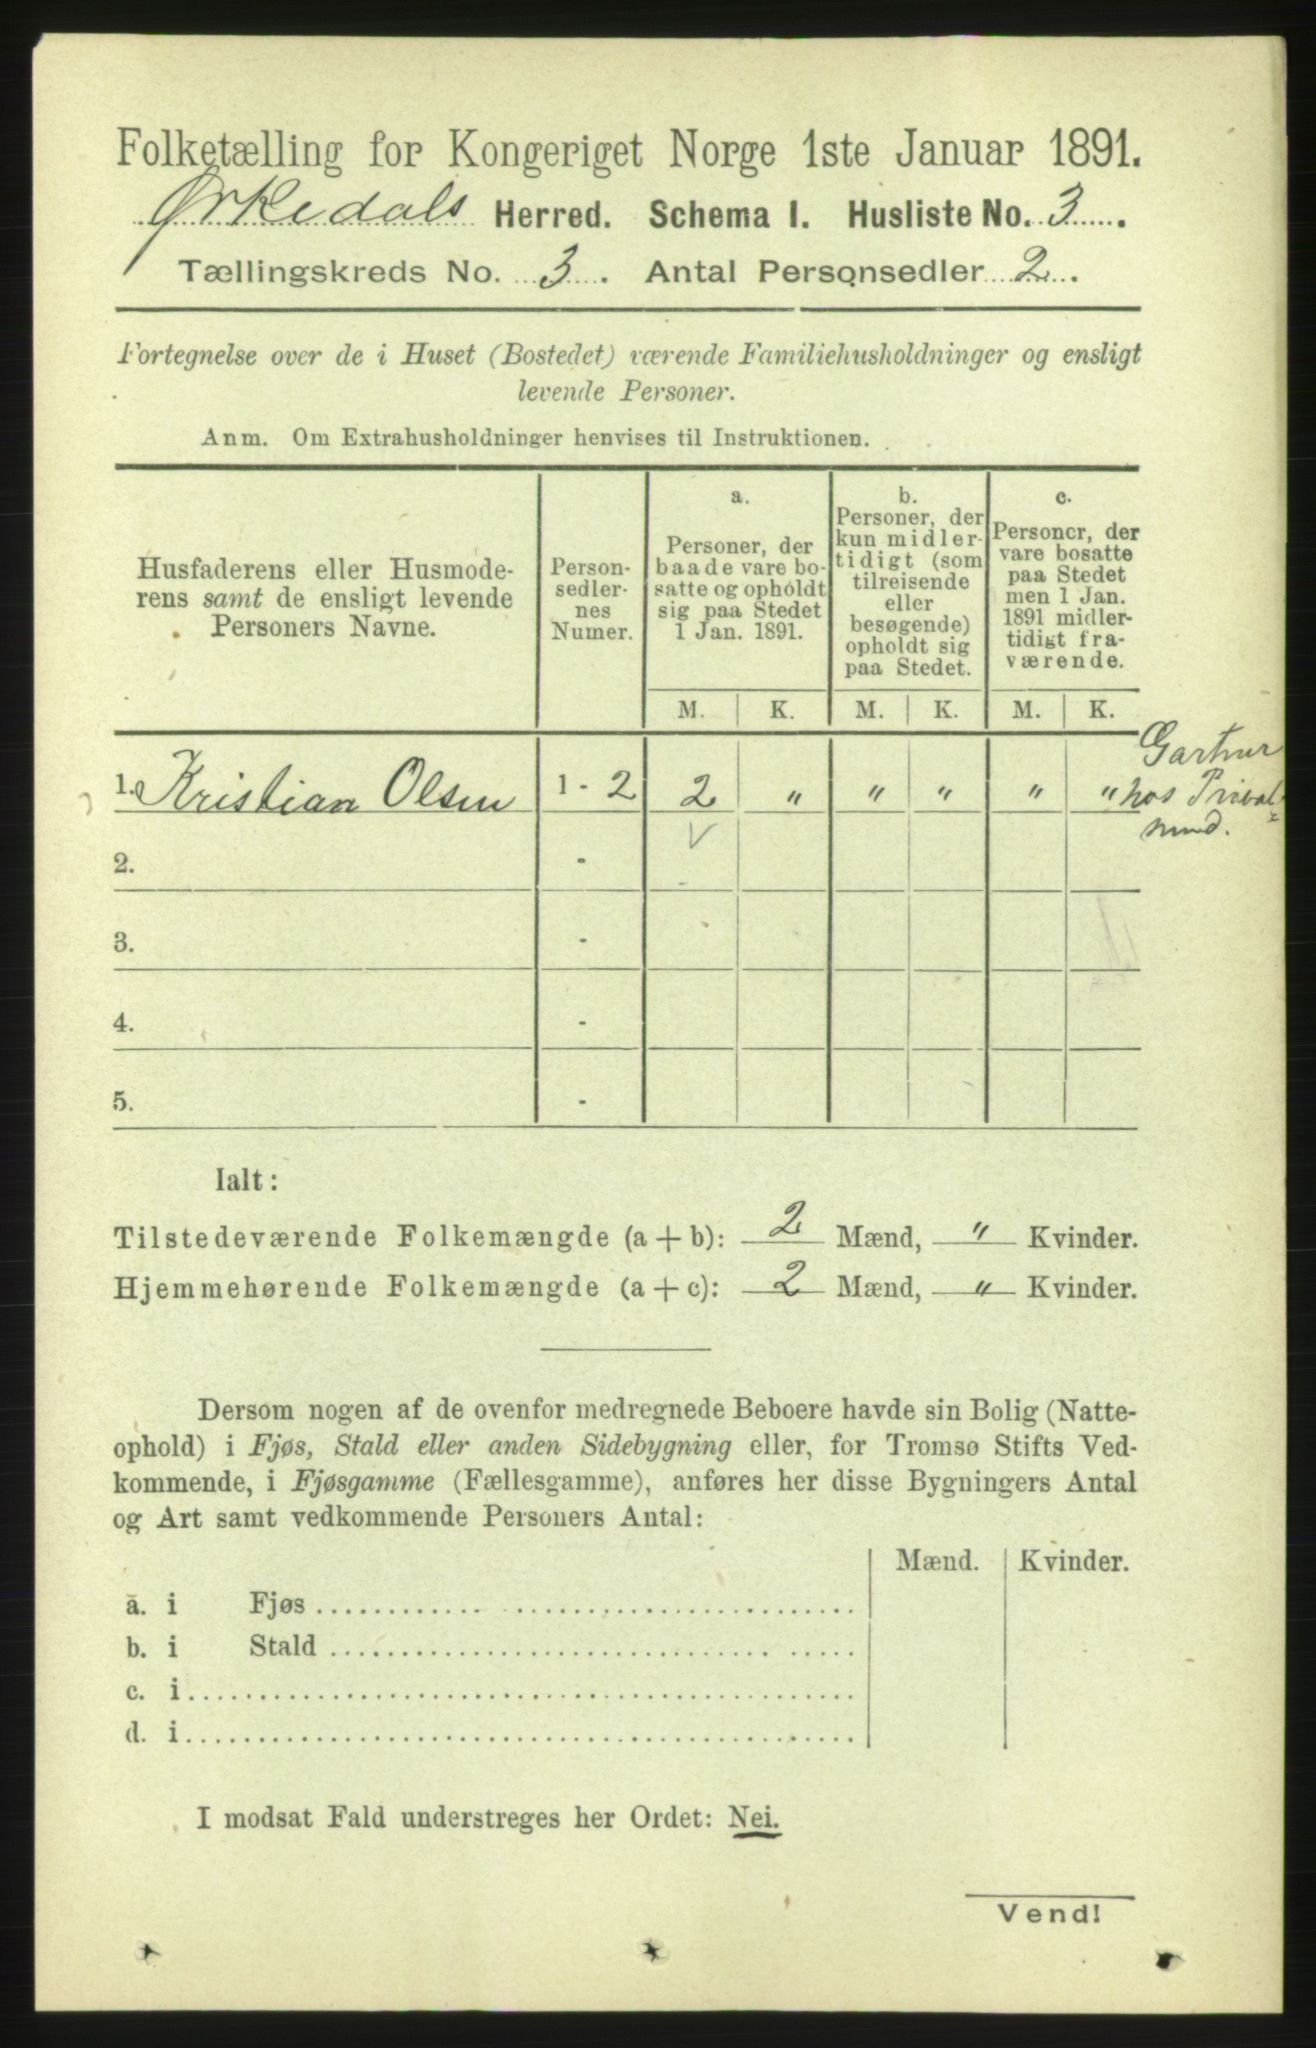 Folketælling for Kongeriget Norge 1ste Januar 1891.
Ørkedals Herred. Schema I. Husliste No. 3.
Tællingskreds No. 3. Antal Personsedler 2.
Fortegnelse over de i Huset (Bostedet) værende Familiehusholdninger og ensligt
levende Personer.
Anm. Om Extrahusholdninger henvises til Instruktionen.
Husfaderens eller Husmode-
rens samt de ensligt levende
Personers Navne.
Person-
sedler-
nes
Numer.
a.
Personer, der
baade vare bo-
satte og opholdt
sig paa Stedet
1 Jan. 1891.
b.
Personer, der
kun midler-
tidigt (som
tilreisende
eller
besøgende)
opholdt sig
paa Stedet.
c.
Personer, der
vare bosatte
paa Stedet
men 1 Jan.
1891 midler-
tidigt fra-
værende.
M. K. M. K. M. K.
1. Kristian Olsen 1 - 2 2 " " " " "
Gartner
hos Privat
mnd.
2. -
3. -
4. -
5. -
Ialt:
Tilstedeværende Folkemængde (a + b): 2 Mænd, " Kvinder.
Hjemmehørende Folkemængde (a + c): 2 Mænd, " Kvinder.
Dersom nogen af de ovenfor medregnede Beboere havde sin Bolig (Natte-
ophold) i Fjøs, Stald eller anden Sidebygning eller, for Tromsø Stifts Ved-
kommende, i Fjøsgamme (Fællesgamme), anføres her disse Bygningers Antal
og Art samt vedkommende Personers Antal:
Mænd. Kvinder.
a. i Fjøs
b. i Stald
c. i
d. i
I modsat Fald understreges her Ordet: Nei.
Vend!